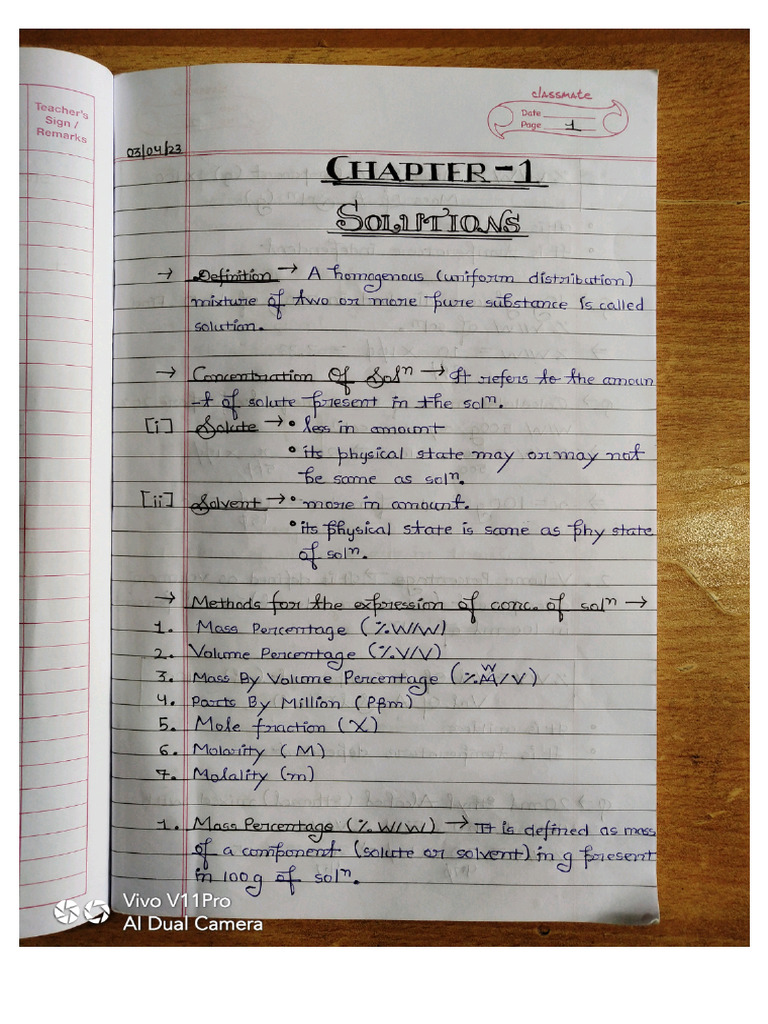 Teacher's
Sign /
Remarks
classmate
Date
Page 1
03/04/23
CHAPTER-1
SOLUTIONS
→ Definition → A homogenous (uniform distribution)
mixture of two or more pure substance is called
solution.
→ Concentration Of Solⁿ → It refers to the amoun
-t of solute present in the solⁿ.
[i] Solute → • less in amount
• its physical state may or may not
be same as solⁿ.
[ii] Solvent → • more in amount.
• its physical state is same as phy state
of solⁿ.
→ Methods for the expression of conc. of solⁿ →
1. Mass Percentage (%W/W)
2. Volume Percentage (%V/V)
3. Mass By Volume Percentage (%W/V)
4. Parts By Million (PPm)
5. Mole fraction (X)
6. Molarity (M)
7. Molality (m)
1. Mass Percentage (%W/W) → It is defined as mass
of a component (solute or solvent) in g present
in 100g of solⁿ.
Vivo V11Pro
AI Dual Camera